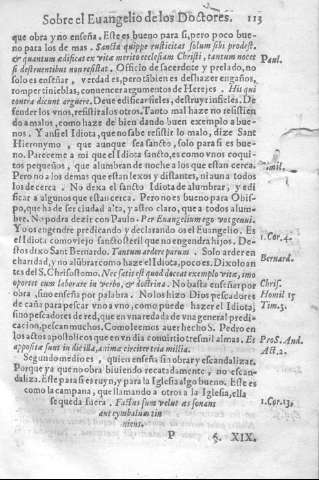 Sobre el Euangelio de los Doctores. 113
que obra y no enseña. Este es bueno para si, pero poco bue-
no para los de mas. Sancta quippe rusticitas solum sibi prodest.
& quantum ædificat ex vitæ merito ecclesiam Christi, tantum nocet
si destruentibus non resistat. Officio de sacerdote y prelado, no
solo es enseñar, verdad es, pero tābien es deshazer engaños,
romper tinieblas, conuencer argumentos de Herejes. His qui
contra dicunt arguere. Deue edificar fieles, destruyr infieles. De
fender los vnos, resistir a los otros. Tanto mal haze no resistien
do a malos, como haze de bien dando buen exemplo a bue-
nos. Y ansi el Idiota, que no sabe resistir lo malo, dize Sant
Hieronymo, que aunque sea sancto, solo para si es bue-
no. Pareceme a mi que el Idiota Sancto, es como vnos coqui-
tos pequeños, que alumbran de noche a los que estan cerca.
Pero no a los demas que estan lexos y distantes, ni a una todos
los de cerca. No dexa el sancto Idiota de alumbrar, y edi
ficar a algunos que estan cerca. Pero no es bueno para Obis-
po, que ha de ser ciudad alta, y astro claro, que a todos alum-
bre. No podra dezir con Paulo. Per Euangelium ego vos genui.
Yo os engendre predicando y declarando os el Euangelio. Es
el Idiota como viejo sancto steril que no engendra hijos. De
stos dixo Sant Bernardo. Tantum ardere parum. Solo arder en
charidad, y no alūbrar como haze el Idiota, poco es. Dixolo an
tes del S. Chrisostomo. Nec satis est quod doceat exemplo vitæ, imo
oportet eum laborare in verbo, & doctrina. No basta enseñar por
obra, sino enseña por palabra. No los hizo Dios pescadores
de caña para pescar vno a vno, como puede hazer el Idiota,
sino pescadores de red, que en vna redada de vna general predi-
cacion, pescan muchos. Como leemos auer hecho S. Pedro en
los actos apostolicos que en vn dia conuirtio tres mil almas. Et
appositæ sunt in die illa, animæ circiter tria millia.
Segundo medio es, quien enseña sin obrar y escandalizar,
Porque ya que no obra biuiendo recatadamente, no escan-
daliza. Este para si es ruyn, y para la Iglesia algo bueno. Este es
como la campana, que llamando a otros a la Iglesia, ella
se queda fuera. Factus sum velut æs sonans
aut cymbalum tin
niens.
P §. XIX.
Paul.
Simil.
1. Cor. 4.
Bernard.
Chris.
Homil 15
Tim. 3.
Act. 2.
1. Cor. 13.